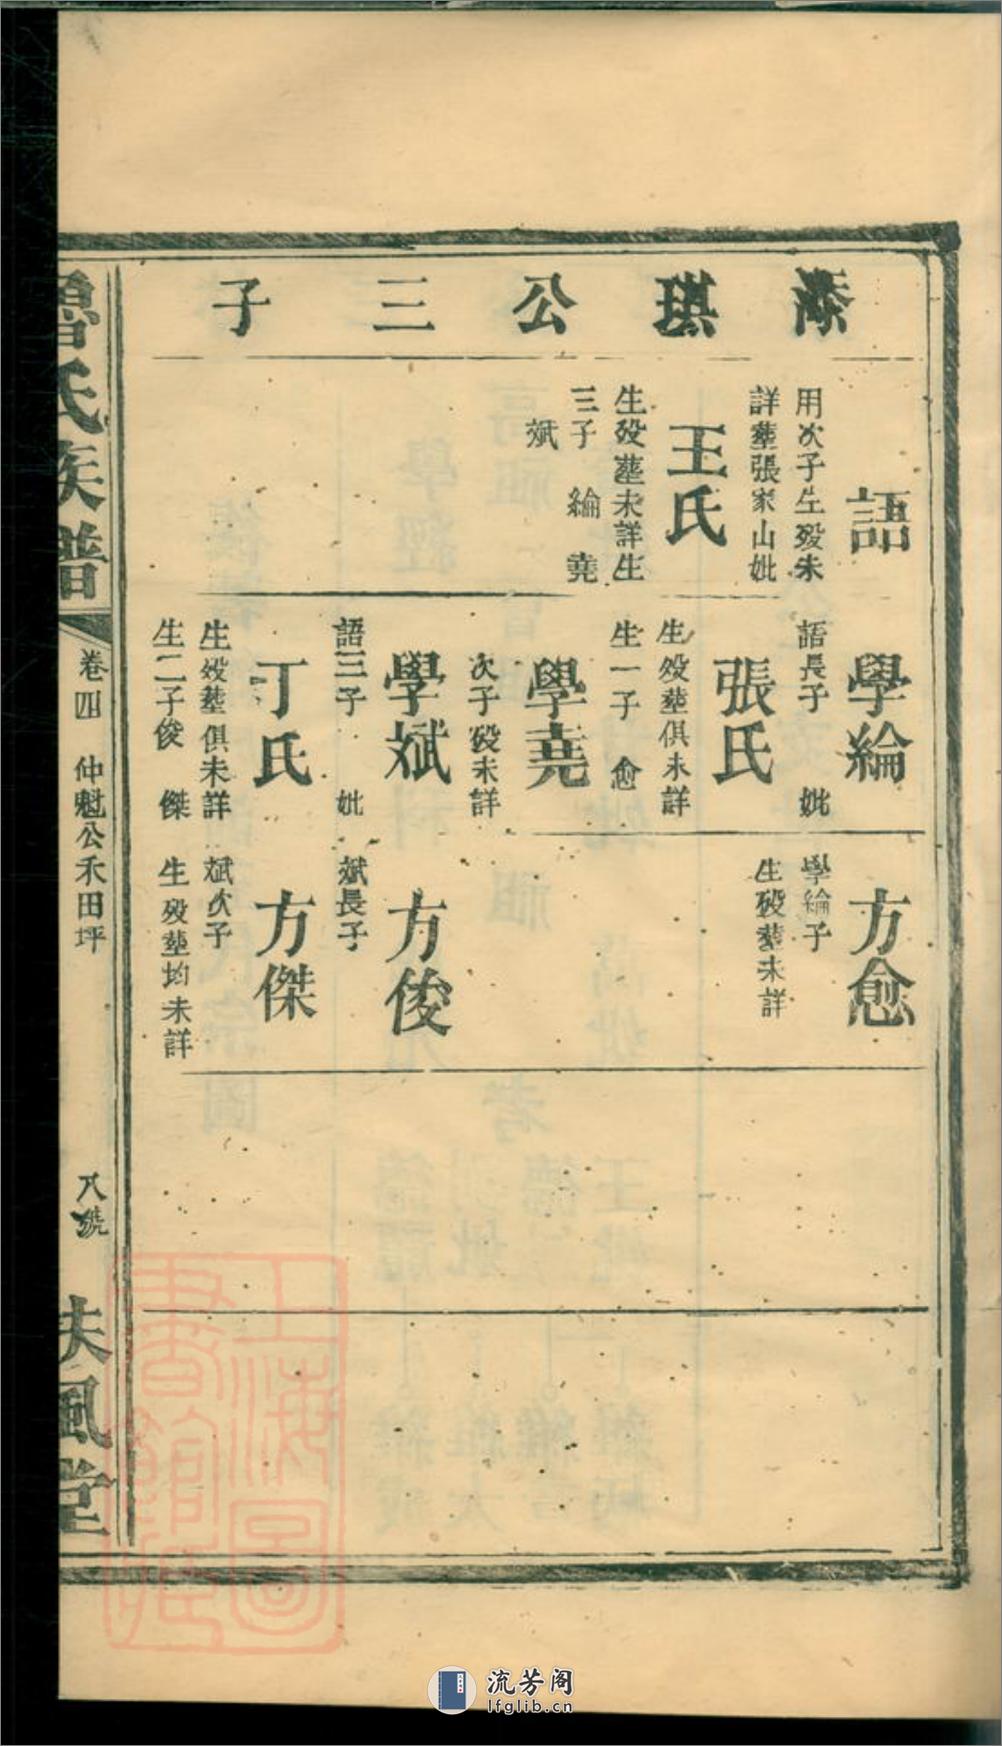 添琪公三子
語
用次子生殁未
詳塟張家山妣
王氏
生殁塟未詳生
三子 綸 堯
斌
學綸
語長子 妣
張氏
生殁塟俱未詳
生一子 愈
學堯
次子殁未詳
學斌
語三子 妣
丁氏
生殁塟俱未詳
生二子俊 傑
方愈
學綸子
生殁塟未詳
方俊
斌長子
方傑
斌次子
生殁塟均未詳
魯氏族譜
卷四 仲魁公禾田坪
八號
扶風堂
上海圖
書館藏
流芳阁
lfglib.cn